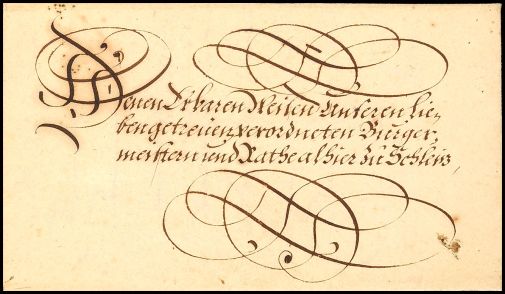 Denen Erbaren Weisen Unseren lie-
ben getreuen verordneten Burger-
meistern und Rathe alhier zu Schleiz,